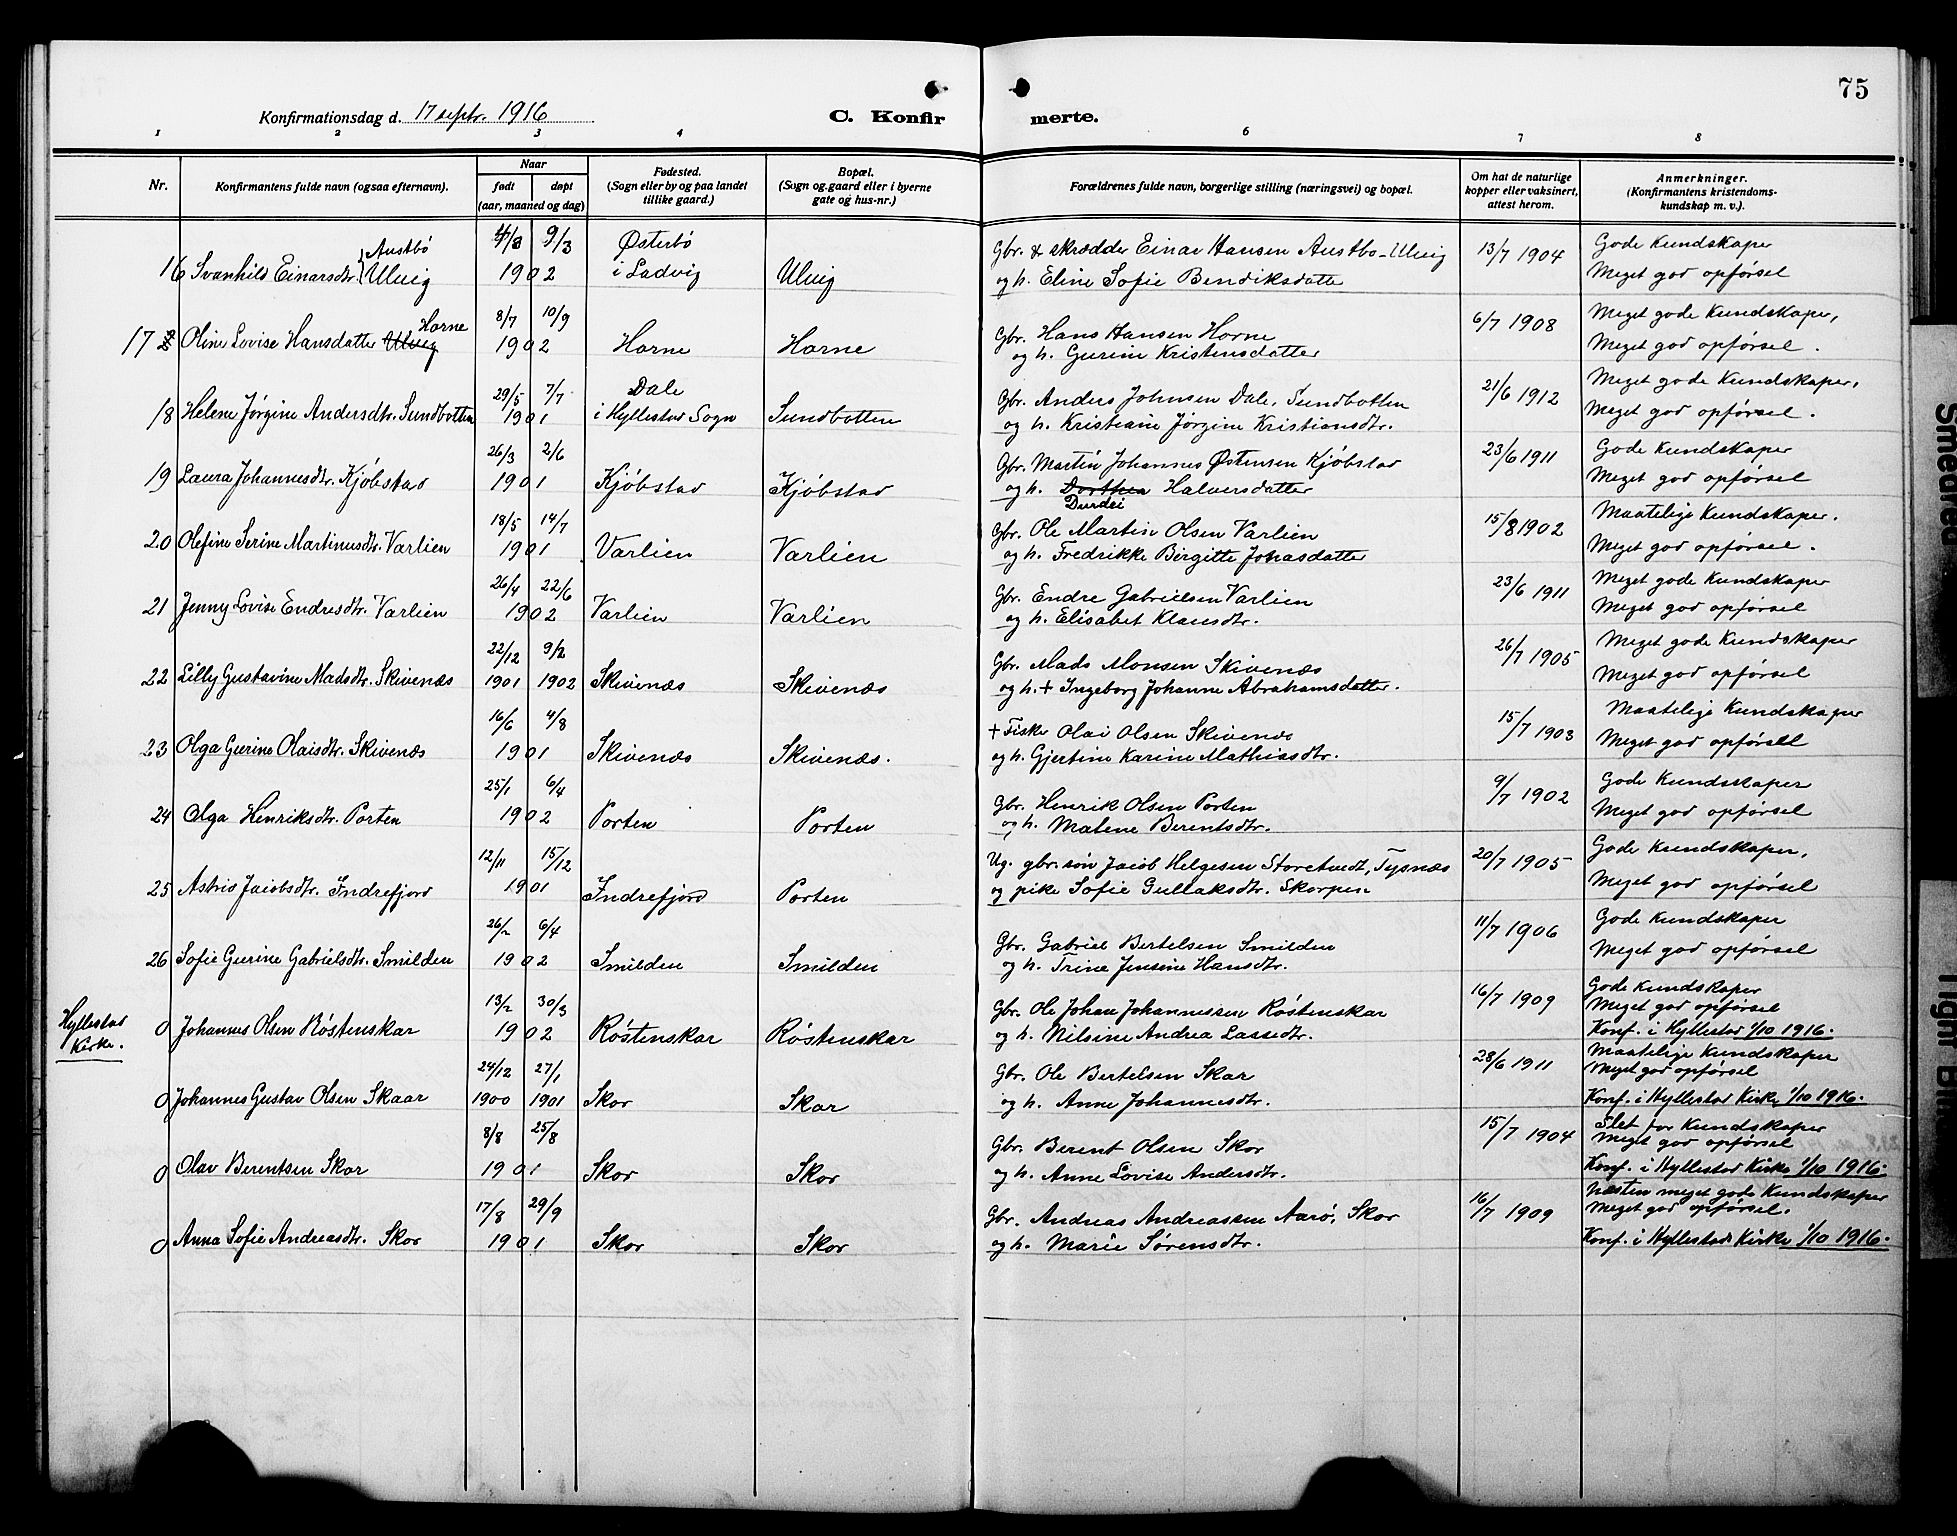 75
Konfirmationsdag d. 17 septr. 1916
C. Konfirmerte.
1 2 3 4 6 7 8
Nr.
Konfirmantens fulde navn (ogsaa efternavn).
Naar
født døpt
(aar, maaned og dag)
Fødested.
(Sogn eller by og paa landet
tillike gaard.)
Bopæl.
(Sogn og gaard eller i byerne
gate og hus-nr.)
Forældrenes fulde navn, borgerlige stilling (næringsvei) og bopæl.
Om hat de naturlige
kopper eller vaksinert,
attest herom.
Anmerkninger.
(Konfirmantens kristendoms-
kundskap m. v.).
Austbö 9/3 Österbö Gbr. & skrædder Einar Hansen Austbö-Ulvig 13/7 1904 Gode Kundskaper
16 Svanhild Einarsdtr. Ulvig 1902 i Ladvig Ulvig og h. Eline Sofie Bendiksdatter Meget god opførsel
Horne 8/7 10/9 Gbr. Hans Hansen Horne 6/7 1908 Meget gode Kundskaper,
17 Oline Lovise Hansdatter Ulvig 1902 Horne Horne og h. Gurine Kristensdatter Meget god opførsel.
29/5 7/7 Dale Gbr. Anders Johnsen Dale, Sundbotten 21/6 1912 Meget gode Kundskaper.
18 Helene Jørgine Andersdtr. Sundbotten 1901 i Hyllestad Sogn Sundbotten og h. Kristiane Jørgine Kristiansdtr. Meget god opførsel.
26/3 2/6 Gbr. Martin Johannes Østensen Kjöbstad 23/6 1911 Gode Kundskaper
19 Laura Johannesdtr. Kjöbstad 1901 Kjöbstad Kjöbstad og h. Dorthea Halversdatter Meget god opførsel
Durdei
18/5 14/7 Gbr. Ole Martin Olsen Varlien 15/8 1902 Maatelige Kundskaper.
20 Olefine Serine Martinusdtr. Varlien 1901 Varlien Varlien og h. Fredrikke Birgitte Jonasdatter Meget god opførsel.
26/4 22/6 Gbr. Endre Gabrielsen Varlien 23/6 1911 Meget gode Kundskaper
21 Jenny Lovise Endresdtr. Varlien 1902 Varlien Varlien og h. Elisabet Klausdtr. Meget god opførsel
22/12 9/2 Gbr. Mads Monsen Skivenæs 26/7 1905 Meget gode Kundskaper
22 Lilly Gustavine Madsdtr. Skivenæs 1901 1902 Skivenæs Skivenæs og h. + Ingeborg Johanne Abrahamsdatter. Meget god opførsel
16/6 4/8 + Fisker Olai Olsen Skivenæs 15/7 1903 Maatelige Kundskaper
23 Olga Gurine Olaisdtr. Skivenæs 1901 Skivenæs Skivenæs. og h. Gjertine Karine Mathiasdtr. Meget god opførsel
25/1 6/4 Gbr. Henrik Olsen Porten 9/7 1902 Gode Kundskaper
24 Olga Henriksdtr. Porten 1902 Porten Porten og h. Malene Berentsdtr. Meget god opførsel
12/11 15/12 Ug. gbr. søn Jacob Helgesen Storetvedt, Tysnæs 20/7 1905 Gode Kundskaper,
25 Astrid Jacobsdtr. Indrefjord 1901 Indrefjord Porten og pike Sofie Gullaksdtr. Skorpen Meget god opførsel
26/2 6/4 Gbr. Gabriel Bertelsen Smilden 11/7 1906 Gode Kundskaper
26 Sofie Gurine Gabrielsdtr. Smilden 1902 Smilden Smilden og h. Trine Jensine Hansdtr. Meget god opførsel
13/2 30/3 Gbr. Ole Johan Johannessen Röstenskar 16/7 1909 Gode Kundskaper
Meget god opførsel
Hyllestad
Kirke.
0 Johannes Olsen Röstenskar 1902 Röstenskar Röstenskar og h. Nilsine Andrea Lassedtr. Konf. i Hyllestad 1/10 1916.
24/12 27/1 Gbr. Ole Bertelsen Skar 28/6 1911 Maatelige Kundskaper
Meget god opførsel
0 Johannes Gustav Olsen Skaar 1900 1901 Skor Skar og h. Anne Johannesdtr. Konf. i Hyllestad Kirke 1/10 1916.
8/8 25/8 Gbr. Berent Olsen Skor 15/7 1904 Slet for Kundskaper
Meget god opførsel
0 Olav Berentsen Skor 1901 Skor Skor og h. Anne Lovise Andersdtr. Konf. i Hyllestad Kirke 1/10 1916.
17/8 29/9 Gbr. Andreas Andreassen Aarö, Skor 16/7 1909 Næsten meget gode Kundskaper
Meget god opførsel.
0 Anna Sofie Andreasdtr. Skor 1901 Skor Skor og h. Marie Sörensdtr. Konf. i Hyllestad Kirke 1/10 1916.